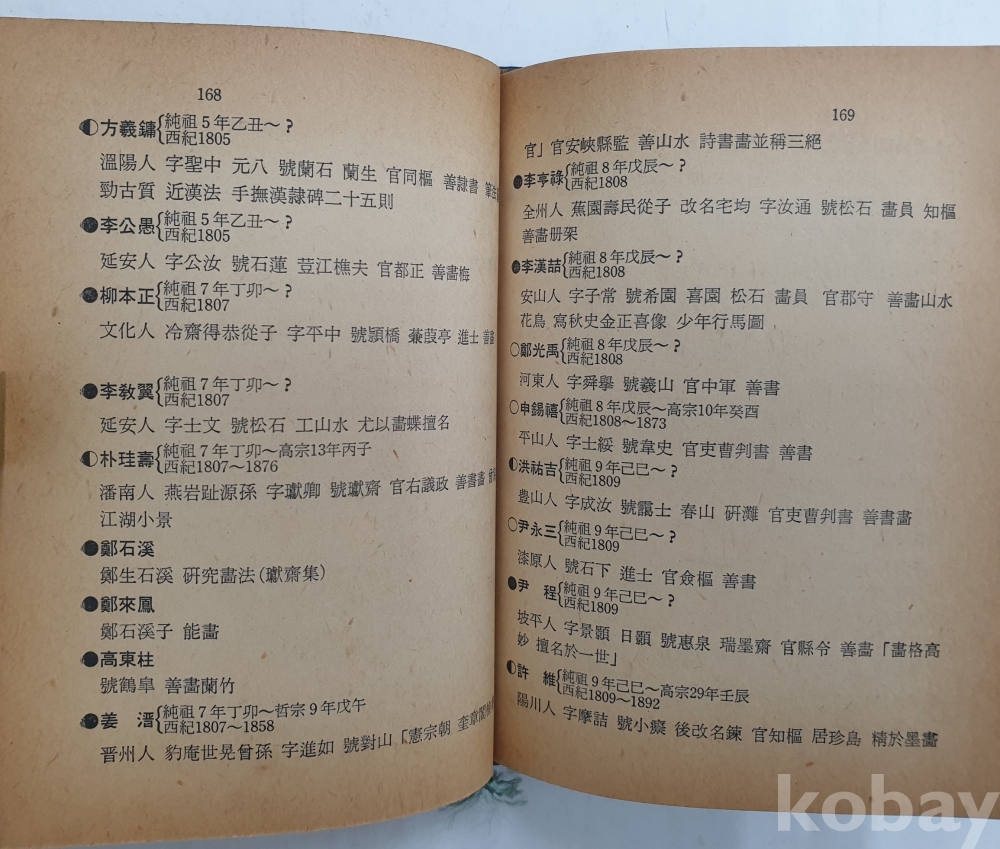 168
◐方羲鏞{純祖5年乙丑～?
西紀1805
溫陽人 字聖中 元八 號蘭石 蘭生 官同樞 善隷書 筆
勁古質 近漢法 手撫漢隷碑二十五則
●李公愚{純祖5年乙丑～?
西紀1805
延安人 字公汝 號石蓮 荳江樵夫 官都正 善畵梅
●柳本正{純祖7年丁卯～?
西紀1807
文化人 冷齋得恭從子 字平中 號頴橋 蒹葭亭 進士 善畵
●李敎翼{純祖7年丁卯～?
西紀1807
延安人 字士文 號松石 工山水 尤以畵蝶擅名
◐朴珪壽{純祖7年丁卯～高宗13年丙子
西紀1807～1876
潘南人 燕岩趾源孫 字瓛卿 號瓛齋 官右議政 善書畵
江湖小景
●鄭石溪
鄭生石溪 硏究畵法(瓛齋集)
●鄭來鳳
鄭石溪子 能畵
●高東柱
號鶴皐 善畵蘭竹
●姜 溍{純祖7年丁卯～哲宗9年戊午
西紀1807～1858
晋州人 豹庵世晃曾孫 字進如 號對山「憲宗朝 奎章閣
169
官」官安峽縣監 善山水 詩書畵並稱三絕
●李亨祿{純祖8年戊辰～?
西紀1808
全州人 蕉園壽民從子 改名宅均 字汝通 號松石 畵員 知樞
善畵册架
●李漢喆{純祖8年戊辰～?
西紀1808
安山人 字子常 號希園 喜園 松石 畵員 官郡守 善畵山水
花鳥 寫秋史金正喜像 少年行馬圖
○鄭光禹{純祖8年戊辰～?
西紀1808
河東人 字舜擧 號羲山 官中軍 善書
○申錫禧{純祖8年戊辰～高宗10年癸酉
西紀1808～1873
平山人 字士綏 號韋史 官吏曹判書 善書
◐洪祐吉{純祖9年己巳～?
西紀1809
豊山人 字成汝 號靄士 春山 硏灘 官吏曹判書 善書畵
○尹永三{純祖9年己巳～?
西紀1809
漆原人 號石下 進士 官僉樞 善書
●尹 程{純祖9年己巳～?
西紀1809
坡平人 字景顥 日顥 號惠泉 瑞墨齋 官縣令 善畵「畵格高
妙 擅名於一世」
◐許 維{純祖9年己巳～高宗29年壬辰
西紀1809～1892
陽川人 字摩詰 號小癡 後改名鍊 官知樞 居珍島 精於墨畵
kobay